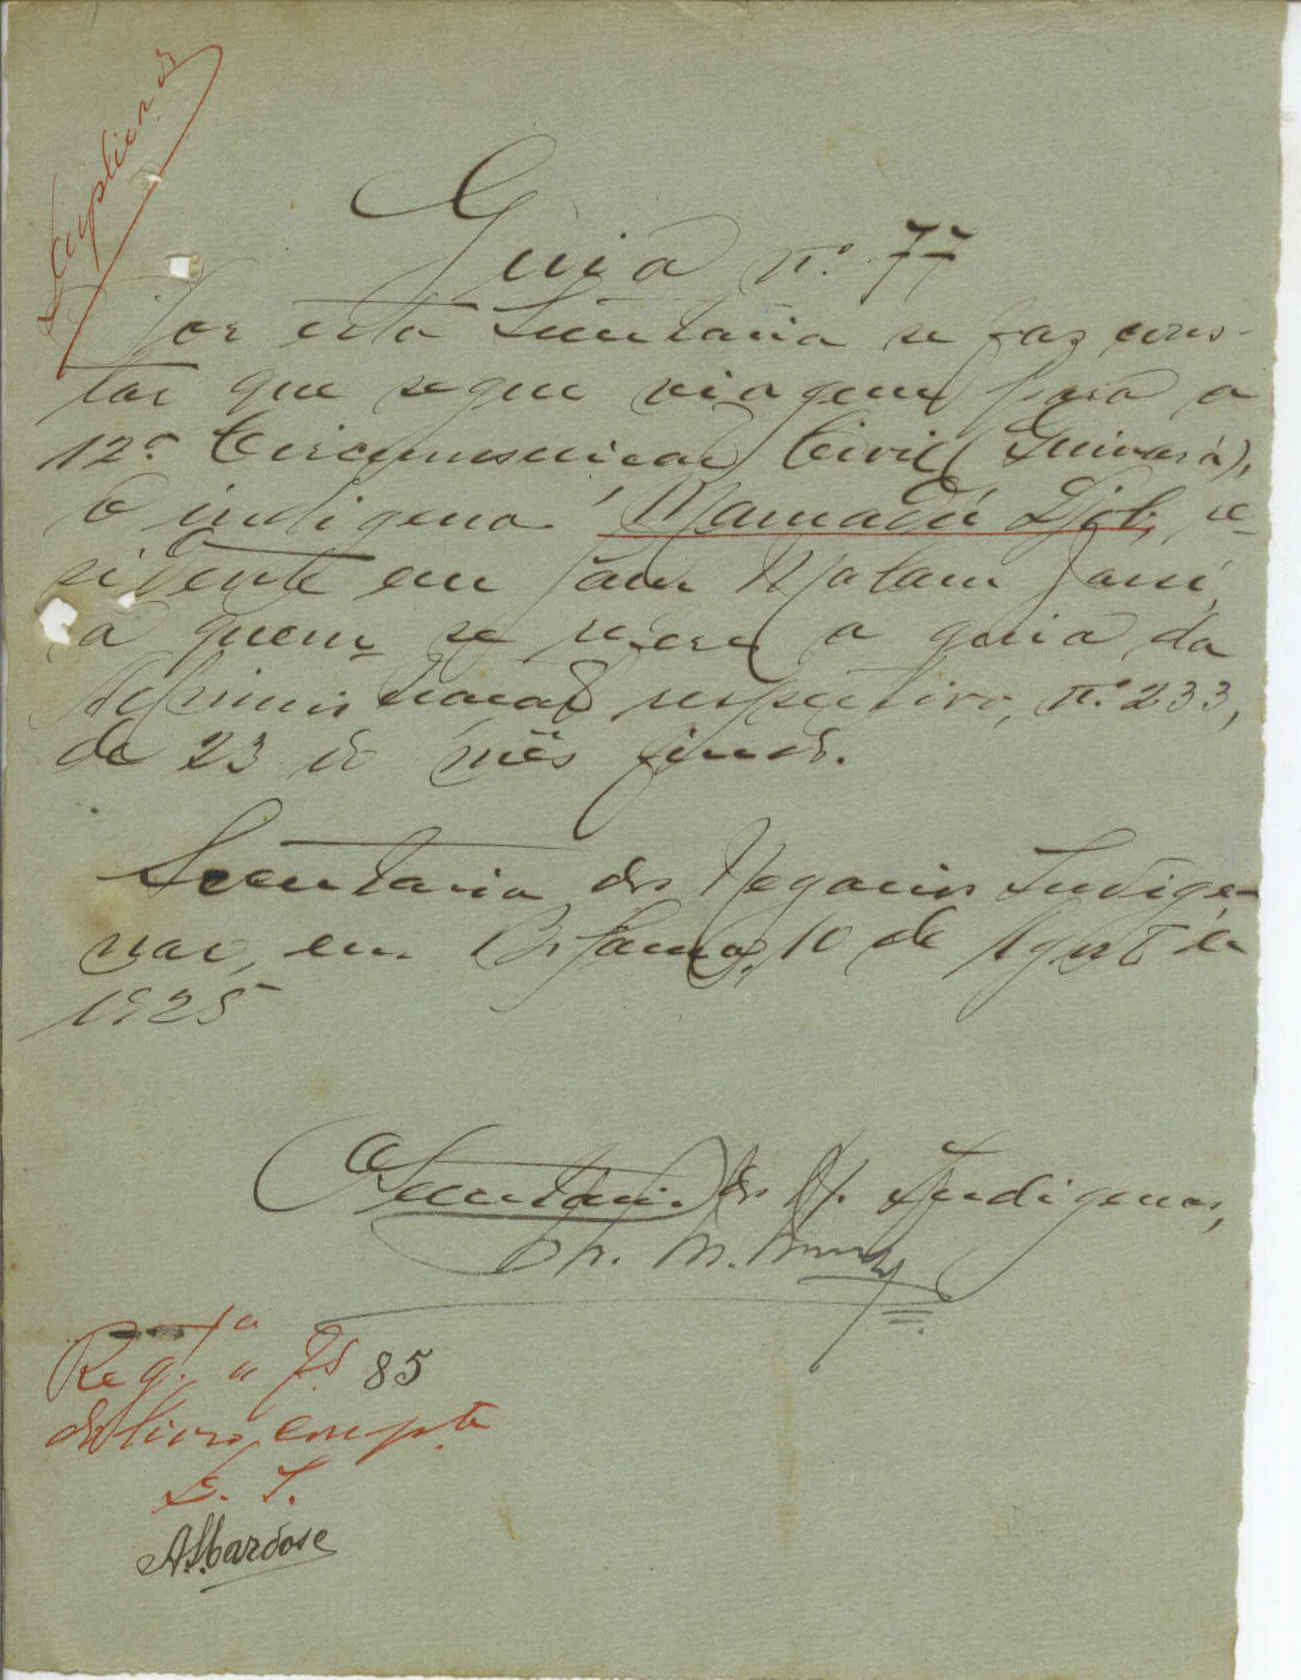 Guia n.º 77
Por esta Secretaria se faz cons-
tar que segue viagem para a
12ª Circunscricao Civil (Quinara),
o indigena Mamadú Djob, re-
sidente em Sam
a quem se refere a guia da
Administracao respectiva, n.º 233,
de 23 do mês findo.
Secretaria dos Negocios Indige-
nas, em Bolama, 10 de Agosto de
1925
O Secretario dos N. Indigenas,
Reg.ta a fs 85
do livro compte
S. I.
A. S. Cardose